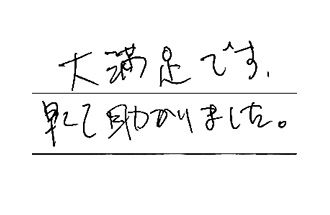 大満足です.
早くて助かりました。